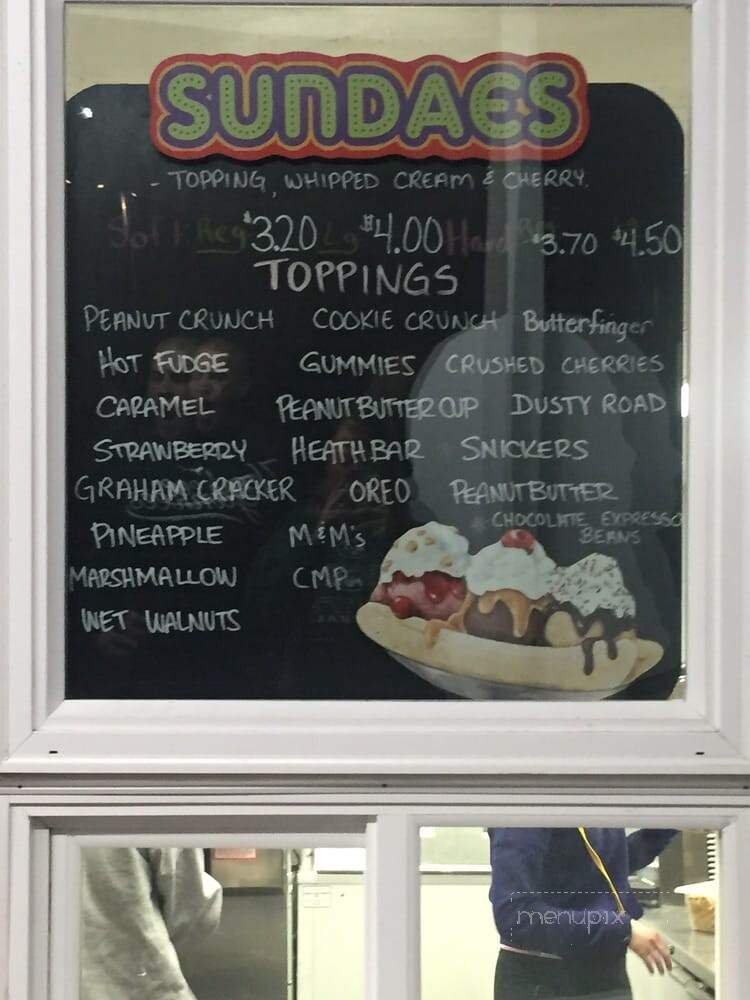 SUNDAES
- TOPPING, WHIPPED CREAM & CHERRY.
Soft Reg $3.20 Lg $4.00 Hard Reg $3.70 $4.50
TOPPINGS
PEANUT CRUNCH COOKIE CRUNCH Butterfinger
HOT FUDGE GUMMIES CRUSHED CHERRIES
CARAMEL PEANUT BUTTER CUP DUSTY ROAD
STRAWBERRY HEATH BAR SNICKERS
GRAHAM CRACKER OREO PEANUT BUTTER
PINEAPPLE M&M's CHOCOLATE EXPRESSO BEANS
MARSHMALLOW CMP
WET WALNUTS
menupix